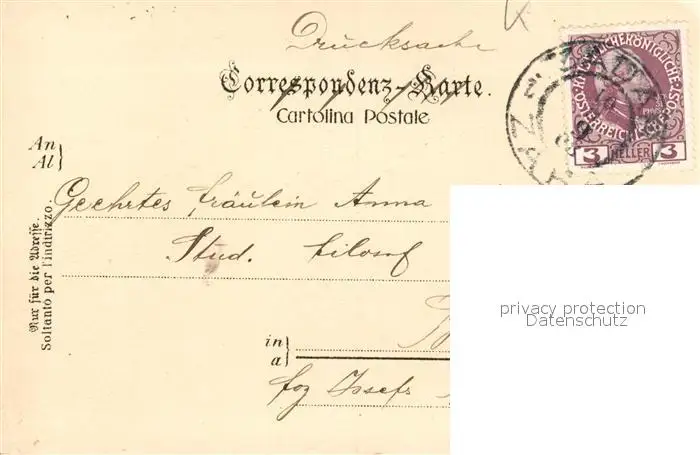 Drucksache
Correspondenz-Karte.
Cartolina Postale
KAISERLICHE KÖNIGLICHE
ÖSTERREICHISCHE POST
3 HELLER 3
ZADAR
ZARA
An
Al
Geehrtes Fräulein Anna
Stud. filosof
in
a
Josefs
Nur für die Adresse.
Soltanto per l'indirizzo.
privacy protection
Datenschutz